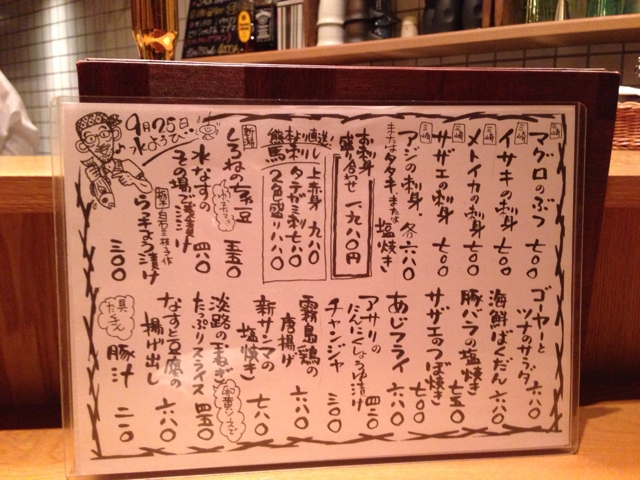 三崎 マグロのぶつ 七〇〇
三崎 イサキの刺身 七〇〇
三崎 メトイカの刺身 七〇〇
三崎 サザエの刺身 七〇〇
アジの刺身、
またはタタキ、または塩焼き 各六八〇
お刺身
盛り合わせ 一九八〇円
熊本より直送!
馬刺し
上赤身 九八〇
タテガミ刺 七八〇
2色盛り 一八〇〇
新潟
水なすの
その場で浅漬け 四八〇
9月25日
水ようび
三〇〇
ゴーヤーと
ツナのサラダ 六八〇
海鮮ばくだん 六八〇
豚バラの塩焼き 七五〇
サザエのつぼ焼き 七〇〇
あじフライ 六八〇
アサリの
にんにくしょうゆ漬け 四二〇
チャンジャ 三〇〇
霧島鶏の
唐揚げ 六八〇
新サンマの
塩焼き 七八〇
淡路の玉ねぎ
たっぷりスライス 四五〇
卵黄ソースで
なすと豆腐の
揚げ出し 六八〇
具だくさん
豚汁 二二〇